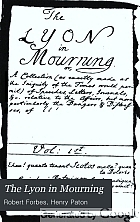 The
LYON
in
Mourning.
A Collection (as exactly made as
the Iniquity of the Times would per-
mit) of Speeches, Letters, Journals
&c. relative to the Affairs, but more
particularly the Dangers & Distres-
ses, of
Vol: 1st.
The Lyon in Mourning
Robert Forbes, Henry Paton